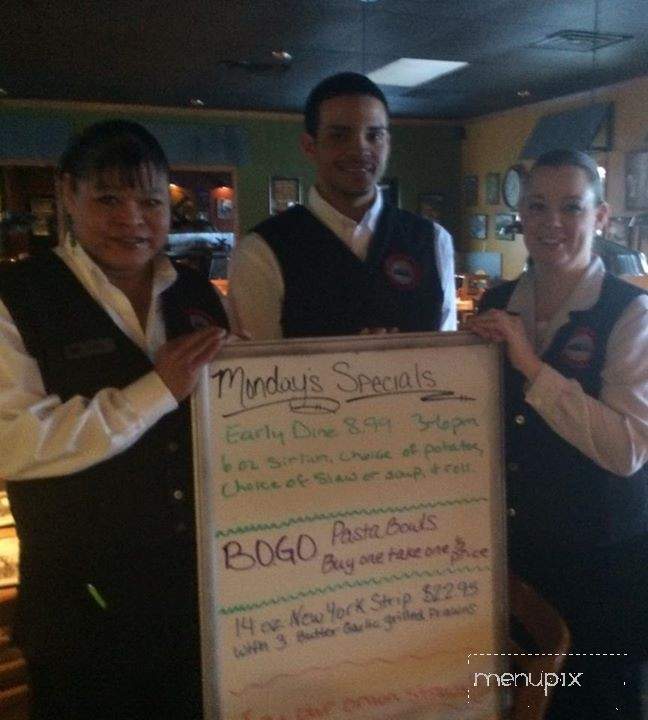 Monday's Specials
Early Dine 8.99 3-6pm
6 oz Sirlin, choice of potatoe,
choice of Slaw or soup, & roll.
BOGO Pasta Bowls
Buy one take one ½ price
14 oz New York Strip $22.95
with 3 Butter Garlic grilled Prawns
our onion
menupix